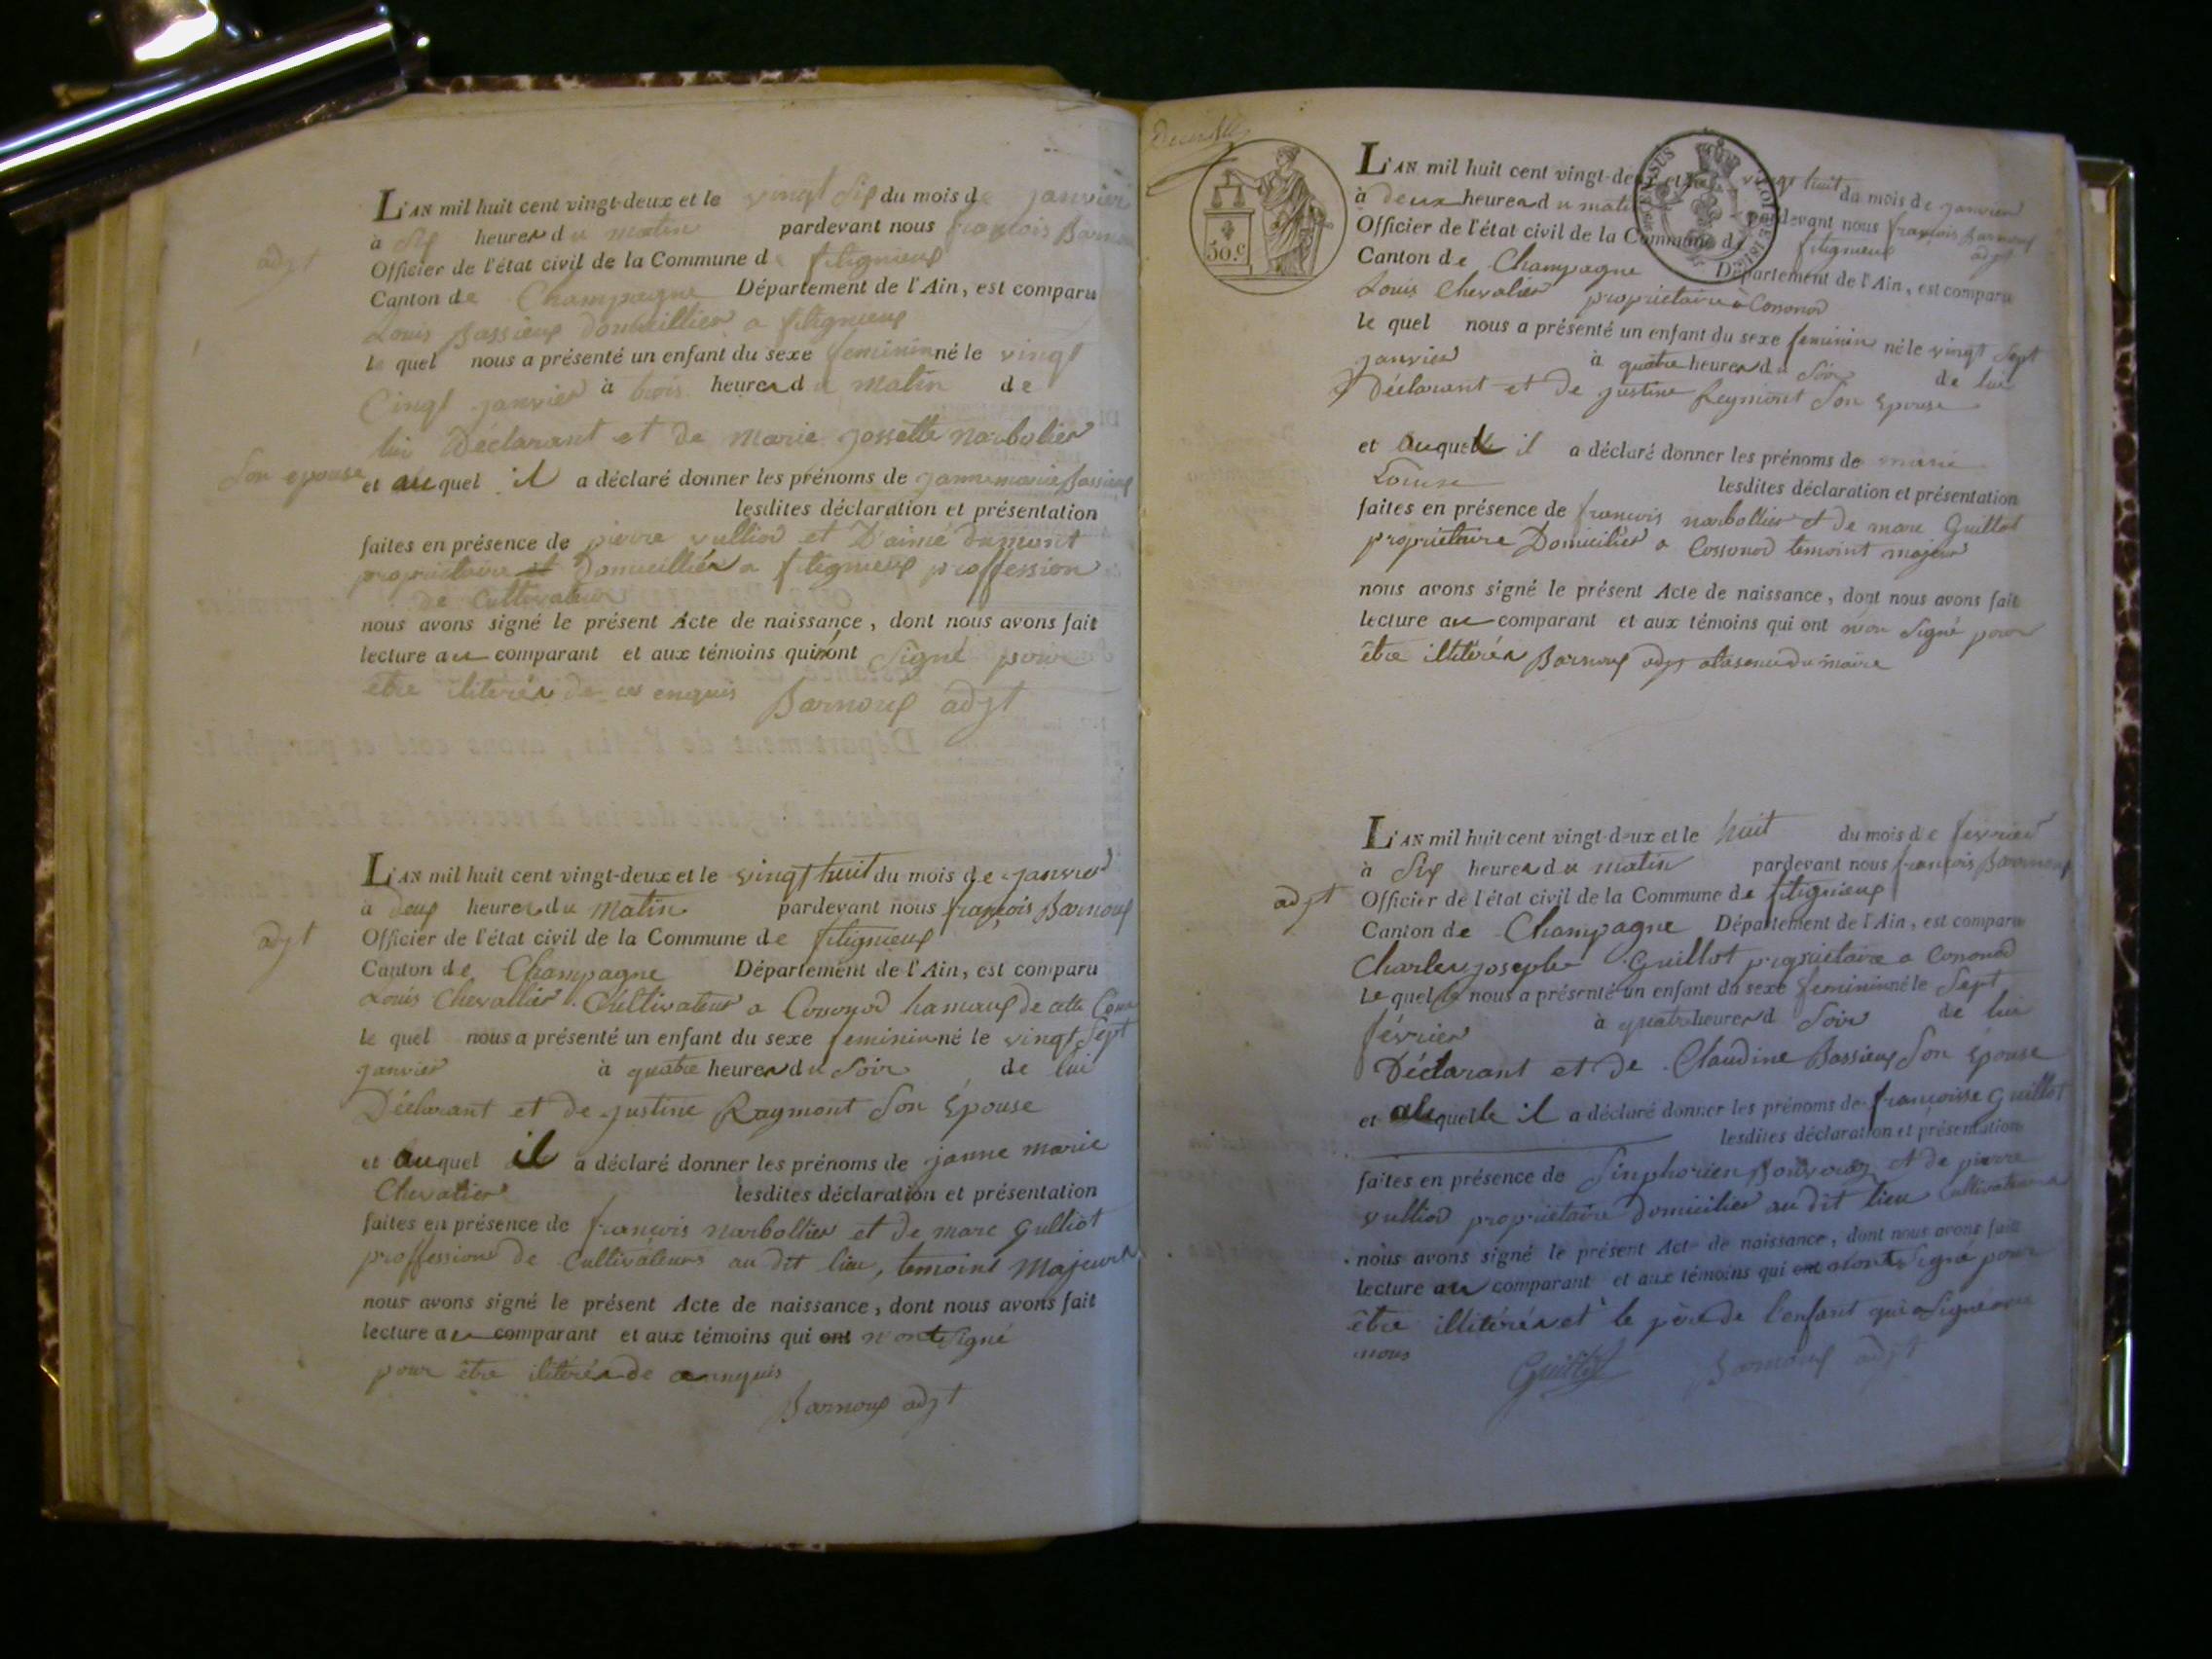 L'AN mil huit cent vingt-deux et le vingt six du mois de janvier
à six heures du matin pardevant nous françois
adjt Officier de l'état civil de la Commune de fitignieux
Canton de Champagne Département de l'Ain, est comparu
Louis Bassieux domicillier a fitignieux
le quel nous a présenté un enfant du sexe feminin né le vingt
Cinqt janvier à trois heures du matin de
lui Déclarant et de marie jossette narbolier
Son epouse et auquel il a déclaré donner les prénoms de jannemarie Bassieux
lesdites déclaration et présentation
faites en présence de pierre vulliod et D'aimé dumont
propriétaire et Domicilliés a fitignieux proffession
de Cultivateur
nous avons signé le présent Acte de naissance, dont nous avons fait
lecture au comparant et aux témoins qui n'ont Signé pour
être iliterés de ces enquis Barnoux adjt
L'AN mil huit cent vingt-deux et le vingt huit du mois de janvier
à deux heures du matin pardevant nous françois Barnoux
adjt Officier de l'état civil de la Commune de fitignieux
Canton de Champagne Département de l'Ain, est comparu
Louis Chevallier Cultivateur a Cossonod hamaux de cette
le quel nous a présenté un enfant du sexe feminin né le vingt Sept
janvier à quatre heures du Soir de lui
Déclarant et de justine Raymont Son Epouse
et auquel il a déclaré donner les prénoms de janne marie
Chevalier lesdites déclaration et présentation
faites en présence de françois narbollier et de marc gulliot
proffession de Cultivateurs au dit lieu, temoins Majeurs
nous avons signé le présent Acte de naissance, dont nous avons fait
lecture au comparant et aux témoins qui ont n'ont Signé
pour être ilitérés de
Barnoux adjt
50.C
L'AN mil huit cent vingt-deux et le vingt huit du mois de janvier
à deux heures du matin pardevant nous françois Barnoux
Officier de l'état civil de la Commune de fitignieux adjt
Canton de Champagne Département de l'Ain, est comparu
Louis Chevalier propriétaire a Cossonod
le quel nous a présenté un enfant du sexe feminin né le vingt Sept
janvier à quatre heures du Soir de lui
Déclarant et de justine Reymont Son Epouse
et auquelle il a déclaré donner les prénoms de marie
Louise lesdites déclaration et présentation
faites en présence de françois narbollier et de marc Guillot
propriétaire Domicilier a Cossonod temoint majeur
nous avons signé le présent Acte de naissance, dont nous avons fait
lecture au comparant et aux témoins qui ont non Signé pour
être illitérés Barnoux adjt du maire
L'AN mil huit cent vingt-deux et le huit du mois de février
à Six heures du matin pardevant nous françois Barnoux
adjt Officier de l'état civil de la Commune de fitignieux
Canton de Champagne Département de l'Ain, est comparu
Charles joseph Guillot propriétaire a Cononod
Le quel nous a présenté un enfant du sexe feminin né le Sept
février à quatre heures d Soir de lui
Déclarant et de Claudine Bassieux Son Epouse
et auquelle il a déclaré donner les prénoms de françoisse Guillot
lesdites déclaration et présentation
faites en présence de Sinphorien et de pierre
vulliod propriétaire Domicilier au dit lieu Cultivateurs
nous avons signé le présent Acte de naissance, dont nous avons fait
lecture au comparant et aux témoins qui ont n'ont Signé pour
être illitérés et le père de l'enfant qui a Signé avec
nous Guillot Barnoux adjt